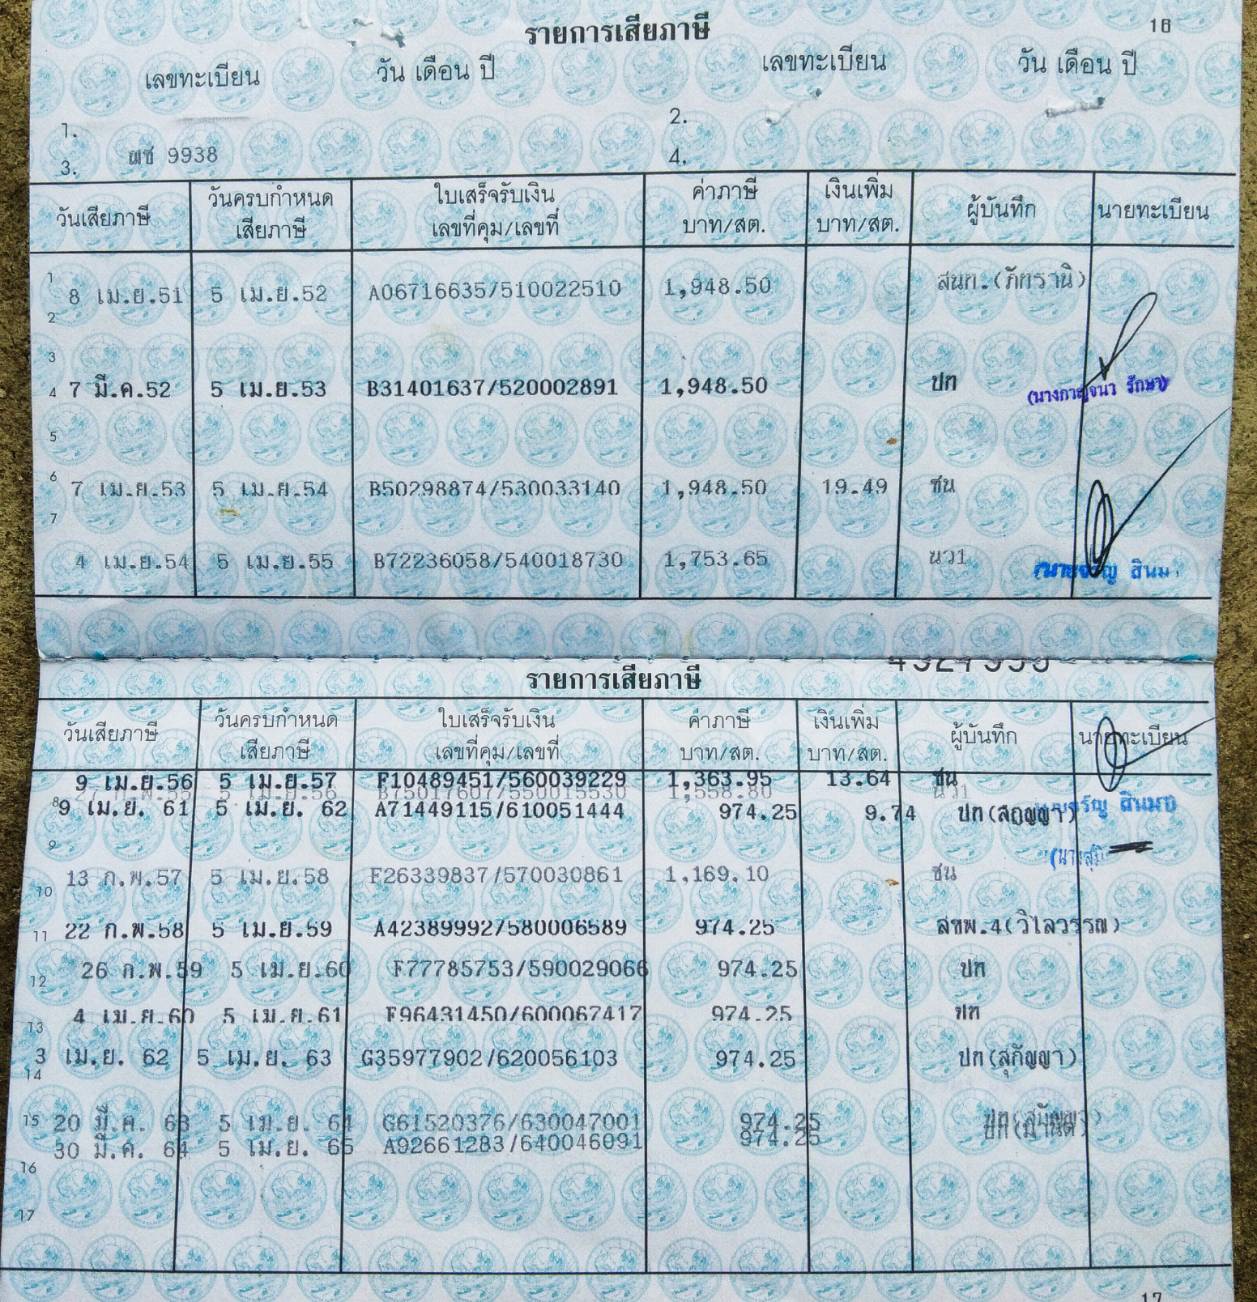 รายการเสียภาษี 16
เลขทะเบียน วัน เดือน ปี เลขทะเบียน วัน เดือน ปี
1. 2.
3. ผช 9938 4.
วันเสียภาษี วันครบกำหนด เสียภาษี ใบเสร็จรับเงิน เลขที่คุม/เลขที่ ค่าภาษี บาท/สต. เงินเพิ่ม บาท/สต. ผู้บันทึก นายทะเบียน
1 8 เม.ย.51 5 เม.ย.52 A06716635/510022510 1,948.50 สนก.(ภัทรานิ)
2
3
4 7 มี.ค.52 5 เม.ย.53 B31401637/520002891 1,948.50 ปก (นางกาญจนา รักษา)
5
6 7 เม.ย.53 5 เม.ย.54 B50298874/530033140 1,948.50 19.49 ชน
7
4 เม.ย.54 5 เม.ย.55 B72236058/540018730 1,753.65 นว1 สินม
รายการเสียภาษี
วันเสียภาษี วันครบกำหนด เสียภาษี ใบเสร็จรับเงิน เลขที่คุม/เลขที่ ค่าภาษี บาท/สต. เงินเพิ่ม บาท/สต. ผู้บันทึก นายทะเบียน
9 เม.ย.56 5 เม.ย.57 F10489451/560039229 1,363.95 13.64 ชน
1,558.80 นว1
8 9 เม.ย. 61 5 เม.ย. 62 A71449115/610051444 974.25 9.74
9
10 13 ก.พ.57 5 เม.ย.58 F26339837/570030861 1,169.10 ชน
11 22 ก.พ.58 5 เม.ย.59 A42389992/580006589 974.25 สทพ.4(วิไลวรรณ)
12 26 ก.พ.59 5 เม.ย.60 F77785753/590029066 974.25 ปก
13 4 เม.ย.60 5 เม.ย.61 F96431450/600067417 974.25 ปก
3 เม.ย. 62 5 เม.ย. 63 G35977902/620056103 974.25 ปก(สุกัญญา)
14
15 20 มี.ค. 63 5 เม.ย. 64 G61520376/630047001 974.25
30 มี.ค. 64 5 เม.ย. 65 A92661283/640046091 974.25
16
17
17